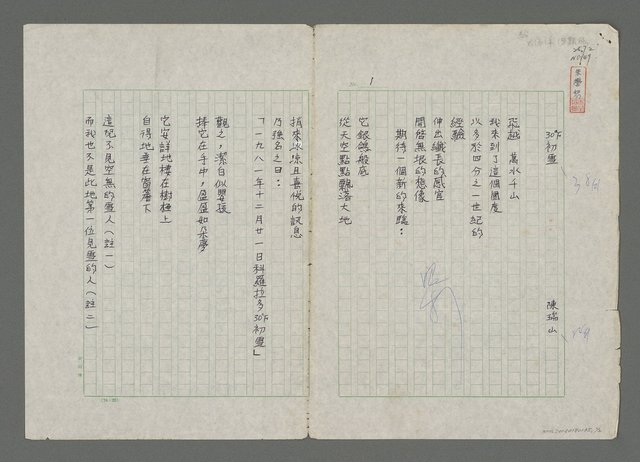 1
30°F 初雪
陳瑞山
飛越 萬水千山
我來到了這個國度
以多於四分之一世紀的
經驗
伸出纖長的感官
開啓無垠的想像
期待一個新的來臨：
它銀鴿般底
從天空點點飄落大地
捎來冰涼且喜悅的訊息
乃強名之曰：
「一九八一年十二月廿一日科羅拉多30°F初雪」
觀之，潔白似嬰孩
捧它在手中，盈盈如朵夢
它安詳地棲在樹椏上
自得地垂在窗簷下
這絕不見空無的雪人（註一）
而我也不是此地第一位見雪的人（註二）